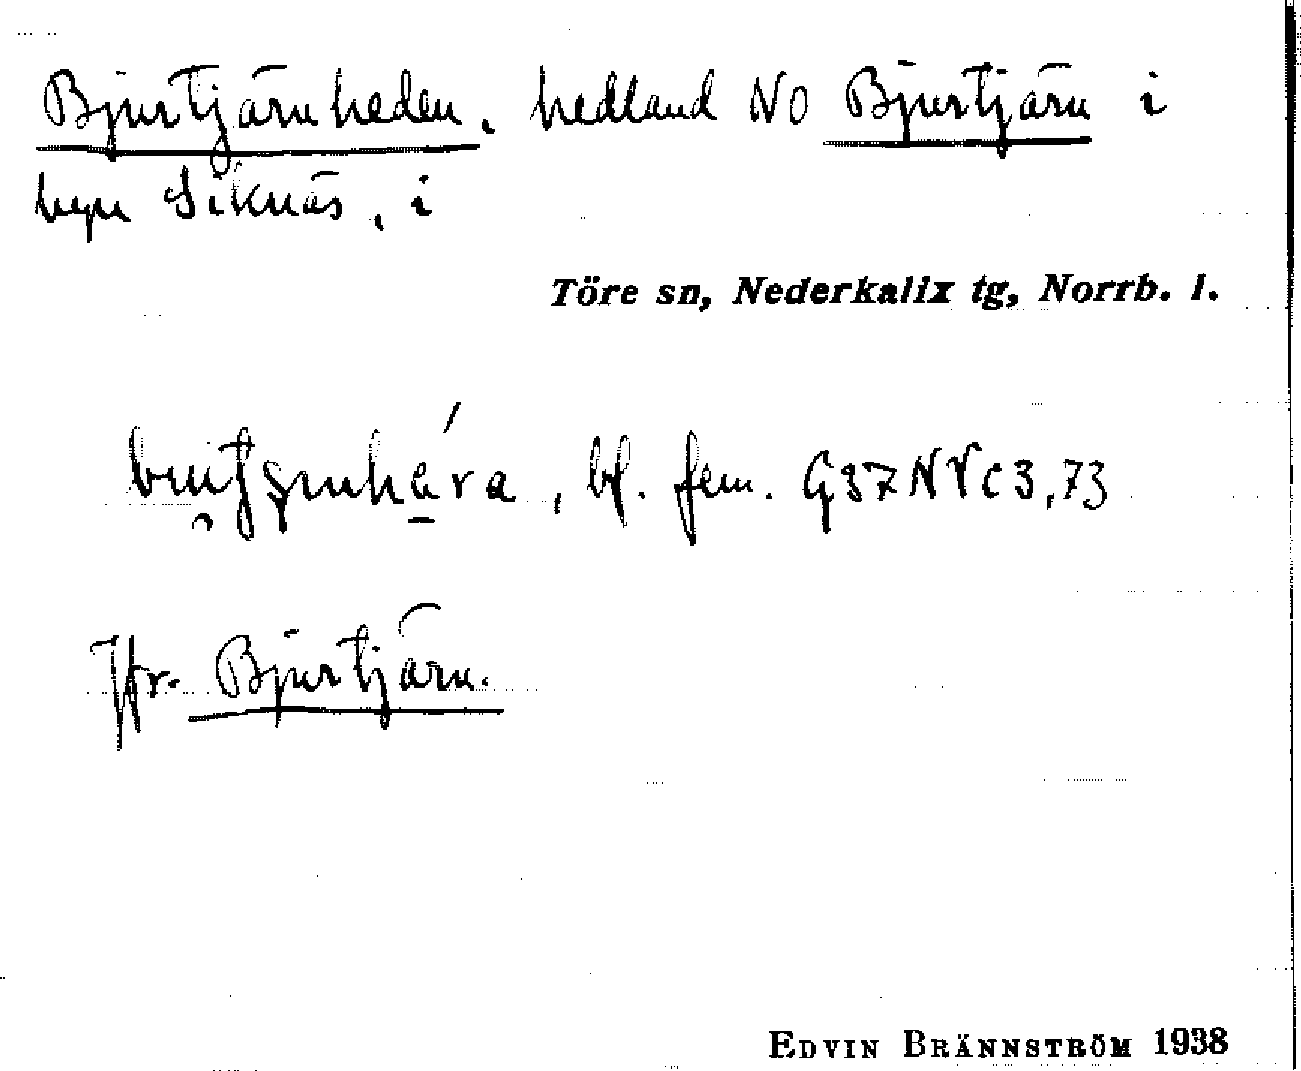 Bjurtjärnheden, hedland NO Bjurtjärn i
byn Siknäs, i
Töre sn, Nederkalix tg, Norrb. l.
, bf. fem. G37NVC3,73
Jfr. Bjurtjärn.
EDVIN BRÄNNSTRÖM 1938